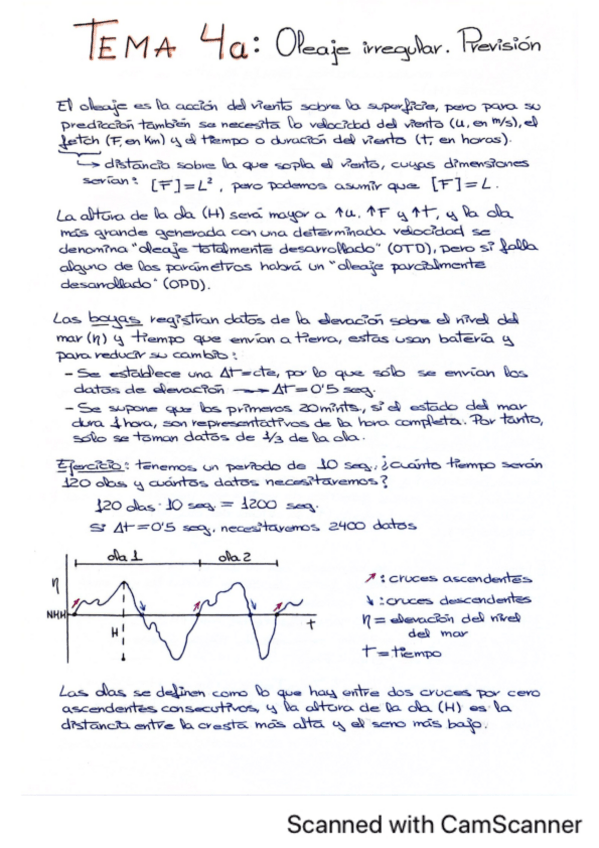 TEMA 4a: Oleaje irregular. Previsión
El oleaje es la acción del viento sobre la superficie, pero para su
predicción también se necesita la velocidad del viento (u, en m/s), el
fetch (F, en Km) y el tiempo o duración del viento (t, en horas).
distancia sobre la que sopla el viento, cuyas dimensiones
serían: [F]=L², pero podemos asumir que [F]=L.
La altura de la ola (H) será mayor a ↑u, ↑F y ↑t, y la ola
más grande generada con una determinada velocidad se
denomina "oleaje totalmente desarrollado" (OTD), pero si falla
alguno de los parámetros habrá un "oleaje parcialmente
desarrollado" (OPD).
Las boyas registran datos de la elevación sobre el nivel del
mar (η) y tiempo que envían a tierra, estas usan batería y
para reducir su cambio:
- Se establece una Δt=cte, por lo que sólo se envían los
datos de elevación → Δt=0'5 seg.
- Se supone que los primeros 20mints, si el estado del mar
dura 1 hora, son representativos de la hora completa. Por tanto,
sólo se toman datos de 1/3 de la ola.
Ejercicio: tenemos un periodo de 10 seg, ¿cuánto tiempo serán
120 olas y cuántos datos necesitaremos?
120 olas · 10 seg = 1200 seg.
Si Δt=0'5 seg, necesitaremos 2400 datos
ola 1 ola 2
η
NMM
H
t
↗: cruces ascendentes
↘: cruces descendentes
η = elevación del nivel
del mar
t = tiempo
Las olas se definen como lo que hay entre dos cruces por cero
ascendentes consecutivos, y la altura de la ola (H) es la
distancia entre la cresta más alta y el seno más bajo.
Scanned with CamScanner